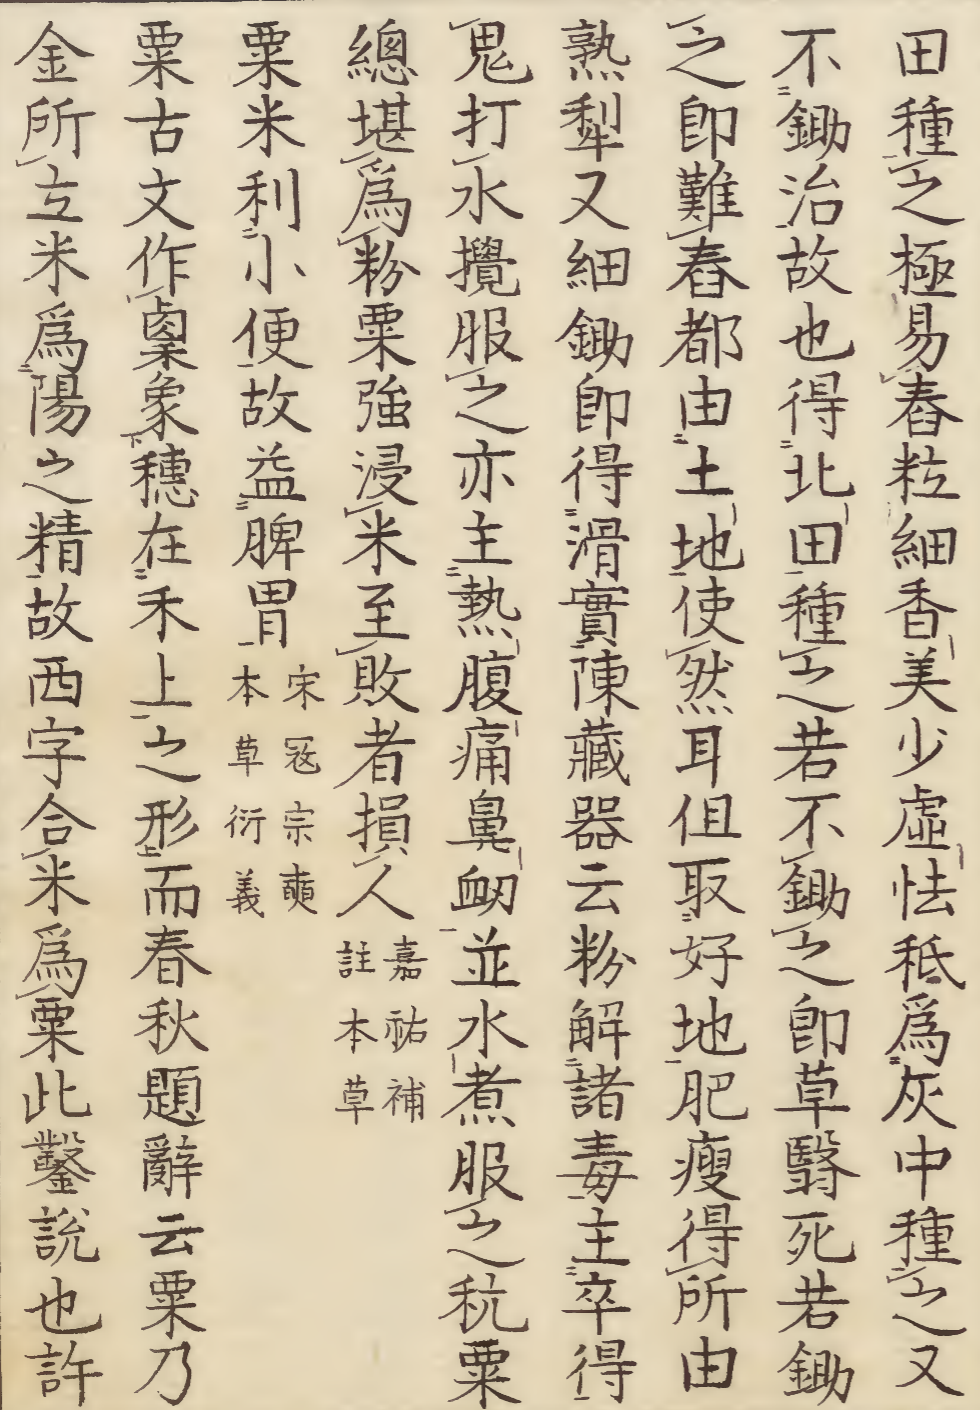 田種之極易舂粒細香美少虛怯秪爲灰中種之又
不鋤治故也得北田種之若不鋤之即草翳死若鋤
之即難舂都由土地使然耳但取好地肥瘦得所由
熟犁又細鋤即得滑實陳藏器云粉解諸毒主卒得
鬼打水攪服之亦主熱腹痛鼻衂並水煮服之秔粟
總堪爲粉粟強浸米至敗者損人嘉祐補註本草
粟米利小便故益脾胃宋冦宗奭本草衍義
粟古文作㮚象穗在禾上之形而春秋題辭云粟乃
金所立米爲陽之精故西字合米爲粟此鑿說也許